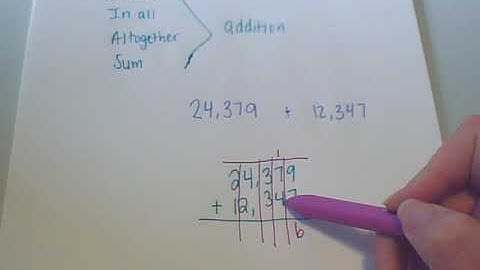 In all
Altogether
Sum
addition
24,379 + 12,347
1
24,379
+ 12,347
6